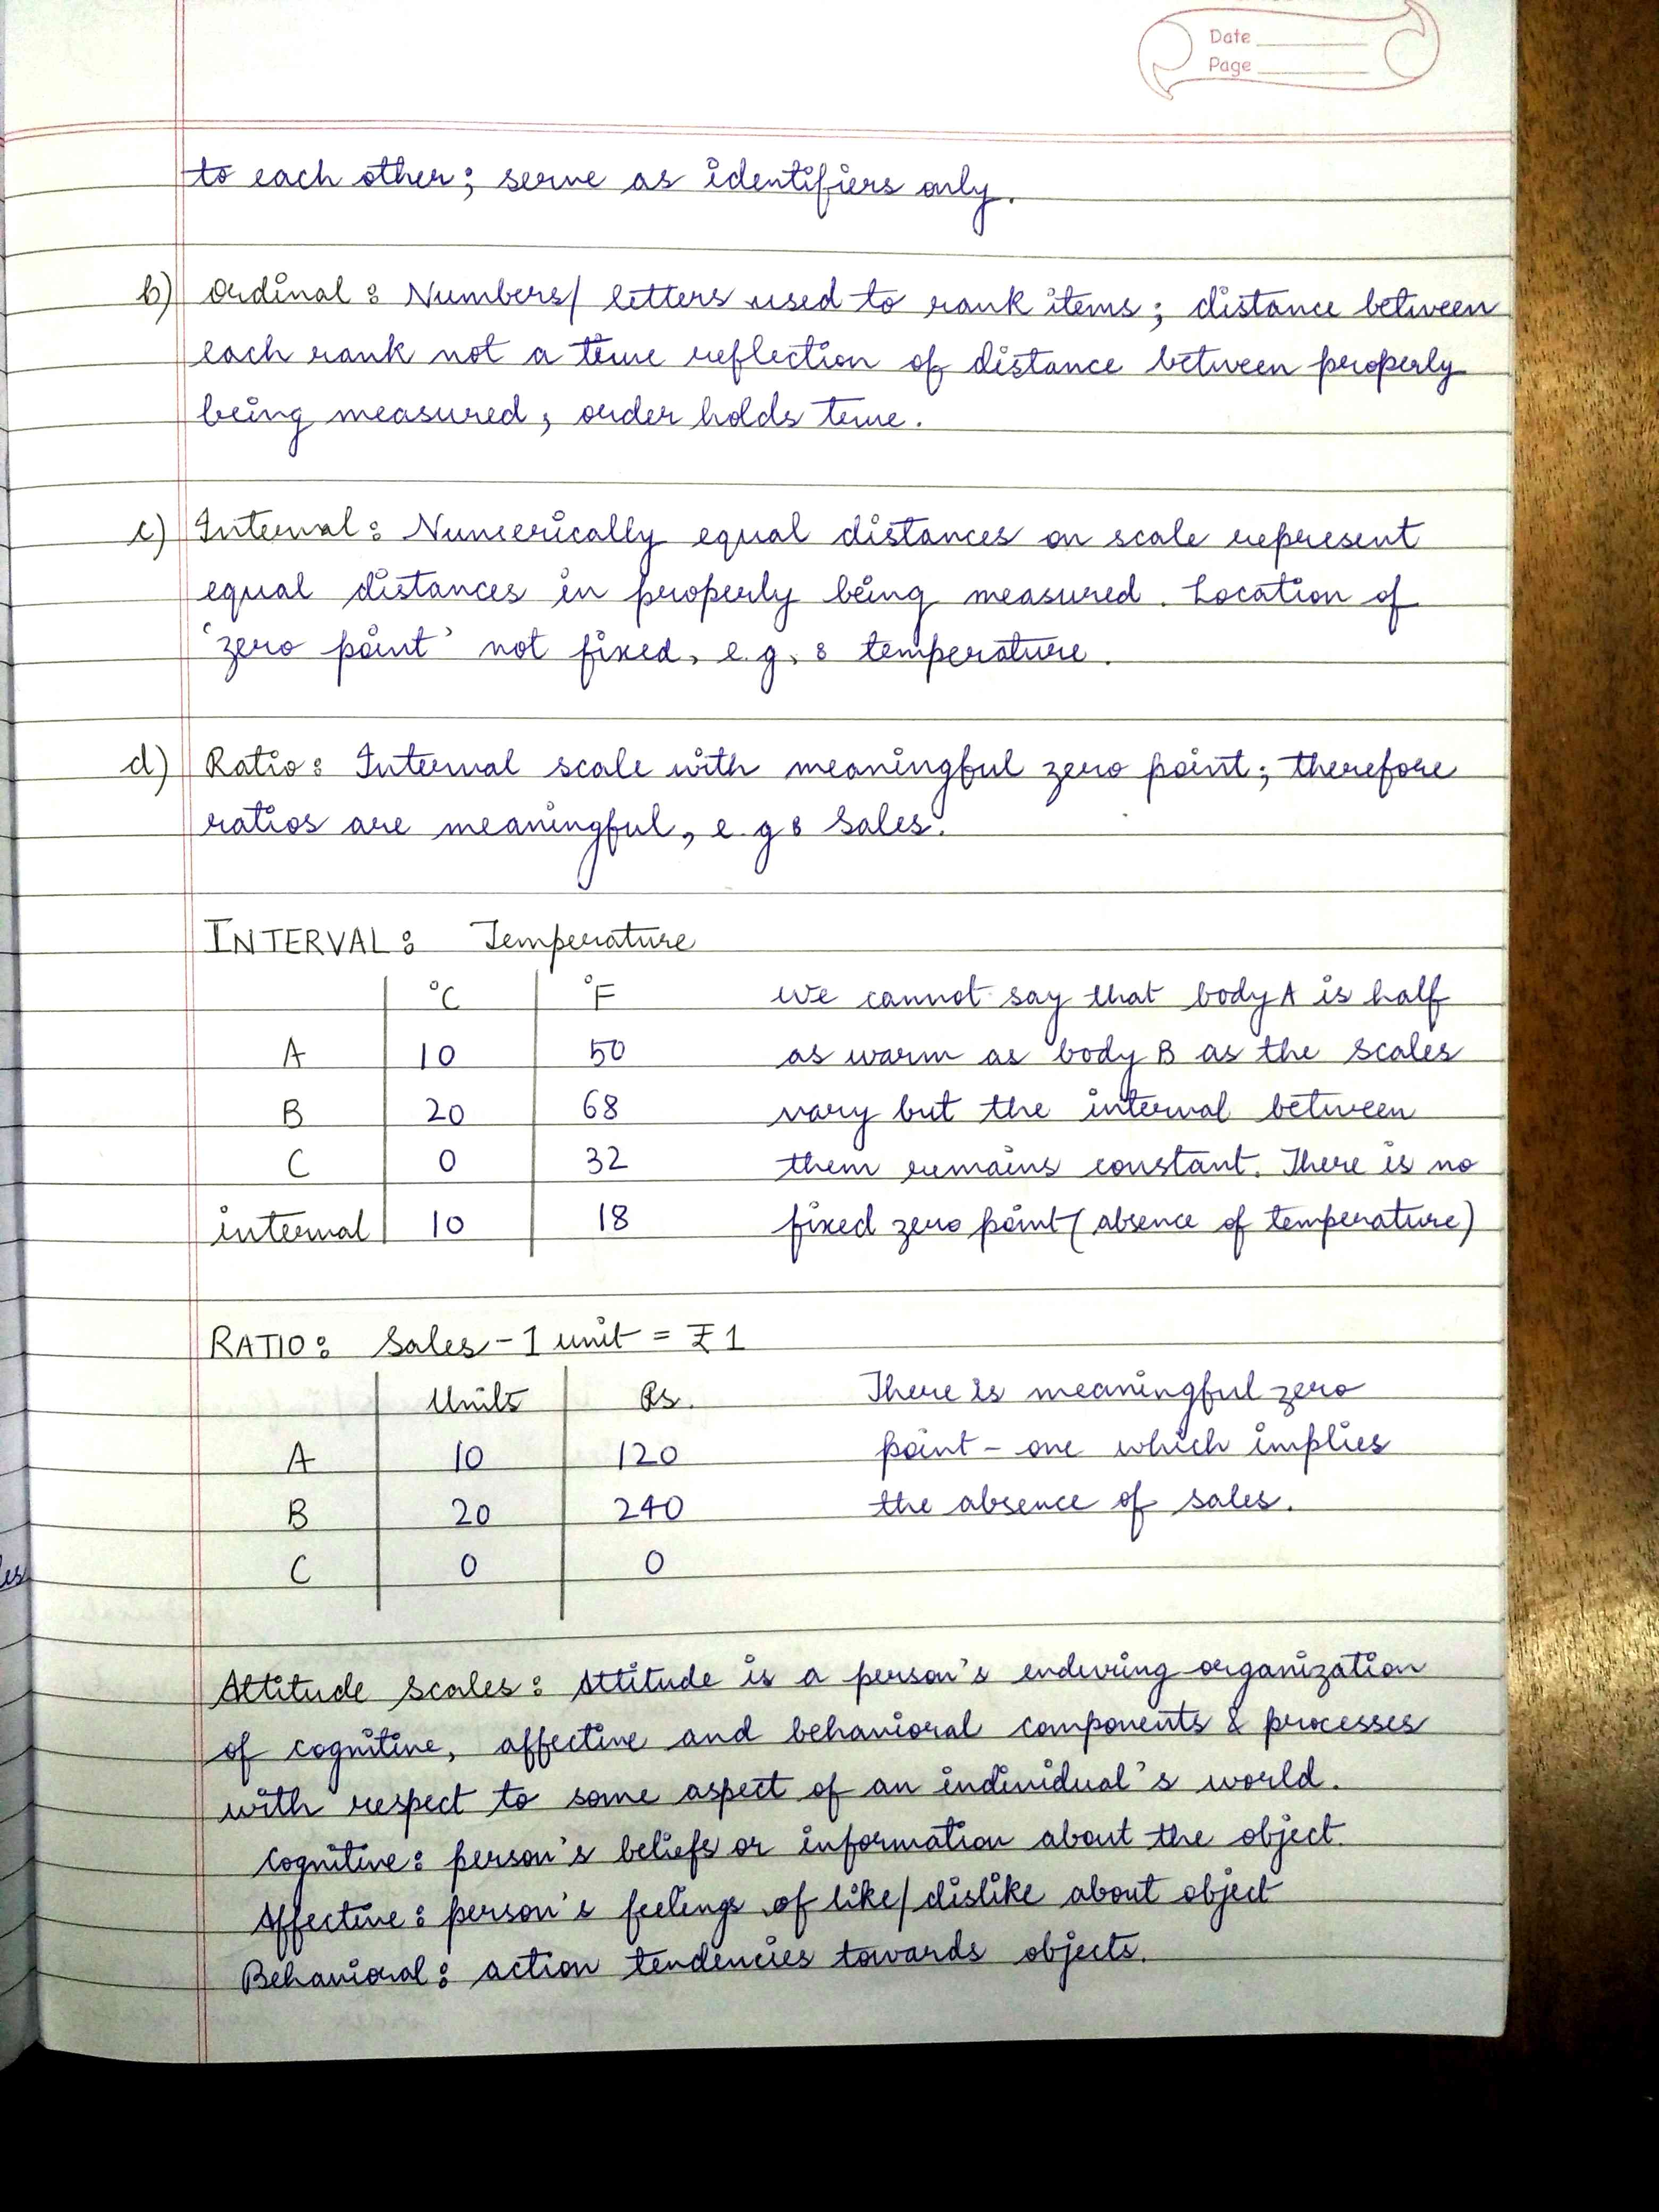 Date
Page
to each other; serve as identifiers only.
b) Ordinal: Numbers/ letters used to rank items; distance between
each rank not a true reflection of distance between property
being measured, order holds true.
c) Interval: Numerically equal distances on scale represent
equal distances in property being measured. Location of
'zero point' not fixed, e.g.: temperature.
d) Ratio: Interval scale with meaningful zero point; therefore
ratios are meaningful, e.g: Sales.
INTERVAL: Temperature
°C °F We cannot say that body A is half
A 10 50 as warm as body B as the scales
B 20 68 vary but the interval between
C 0 32 them remains constant. There is no
interval 10 18 fixed zero point (absence of temperature)
RATIO: Sales - 1 unit = ₹1
Units Rs. There is meaningful zero
A 10 120 point - one which implies
B 20 240 the absence of sales.
C 0 0
Attitude scales: Attitude is a person's enduring organization
of cognitive, affective and behavioral components & processes
with respect to some aspect of an individual's world.
Cognitive: person's beliefs or information about the object.
Affective: person's feelings of like/dislike about object
Behavioral: action tendencies towards objects.